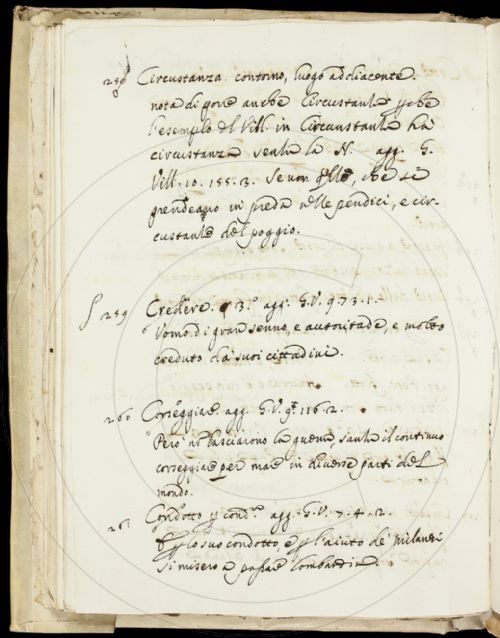 258 Circustanza. contorno, luogo addiacente.
nota di porre anche Circustanze
l'esemplo del Vill. in Circunstanza ha
circustanza senza la N. agg. G.
Vill. 10. 155. 3. Se non che si
in preda nelle pendici, e cir-
custanze del poggio.
259 Credere. 3.º agg. G. V. 9. 73. 1.
Uomo di gran senno, e autoritade, e molto
creduto da suoi cittadini.
260 Corseggiare agg. G. V. 9. 116. 2.
Però nõ lasciarono la guerra, sanza il continuo
corseggiare per mare in diverse parti del
mondo.
261 Condotto agg. G. V. 7. 4. 2.
lo suo condotto, e l'aiuto de' Milanesi
si misero a passare Lombardia.